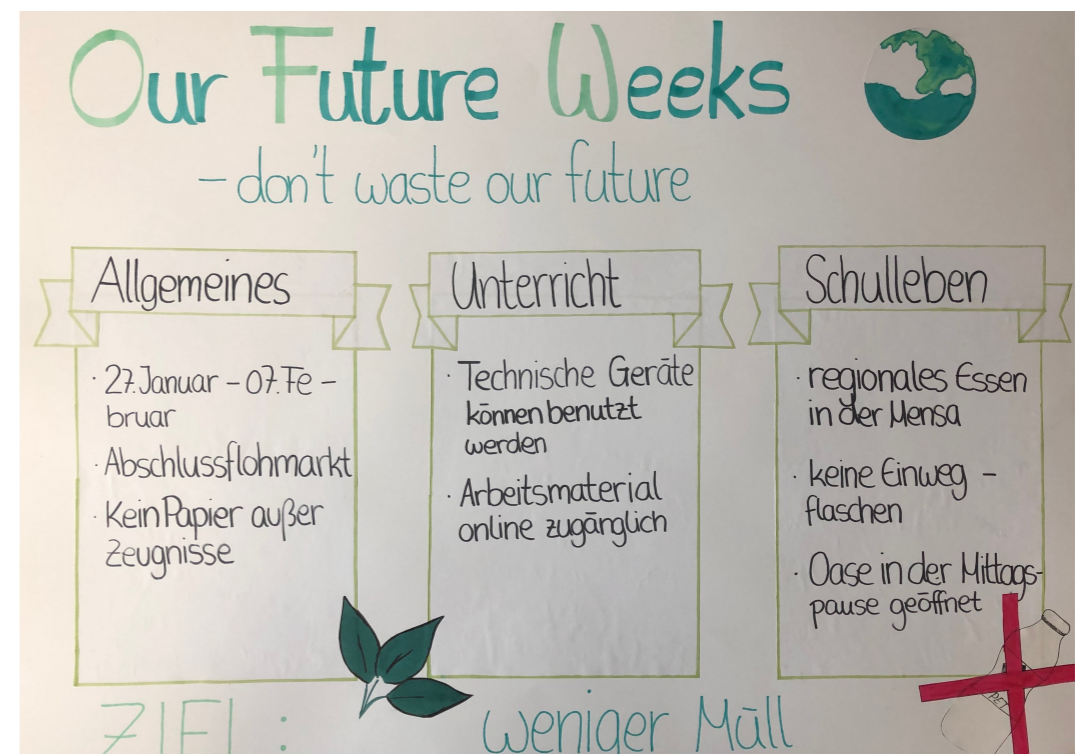 Our Future Weeks
- don't waste our future
Allgemeines
· 27. Januar - 07. Fe -
bruar
· Abschlussflohmarkt
· Kein Papier außer
Zeugnisse
Unterricht
· Technische Geräte
können benutzt
werden
· Arbeitsmaterial
online zugänglich
Schulleben
· regionales Essen
in der Mensa
· keine Einweg -
flaschen
· Oase in der Mittags-
pause geöffnet
PET
ZIEL : weniger Müll